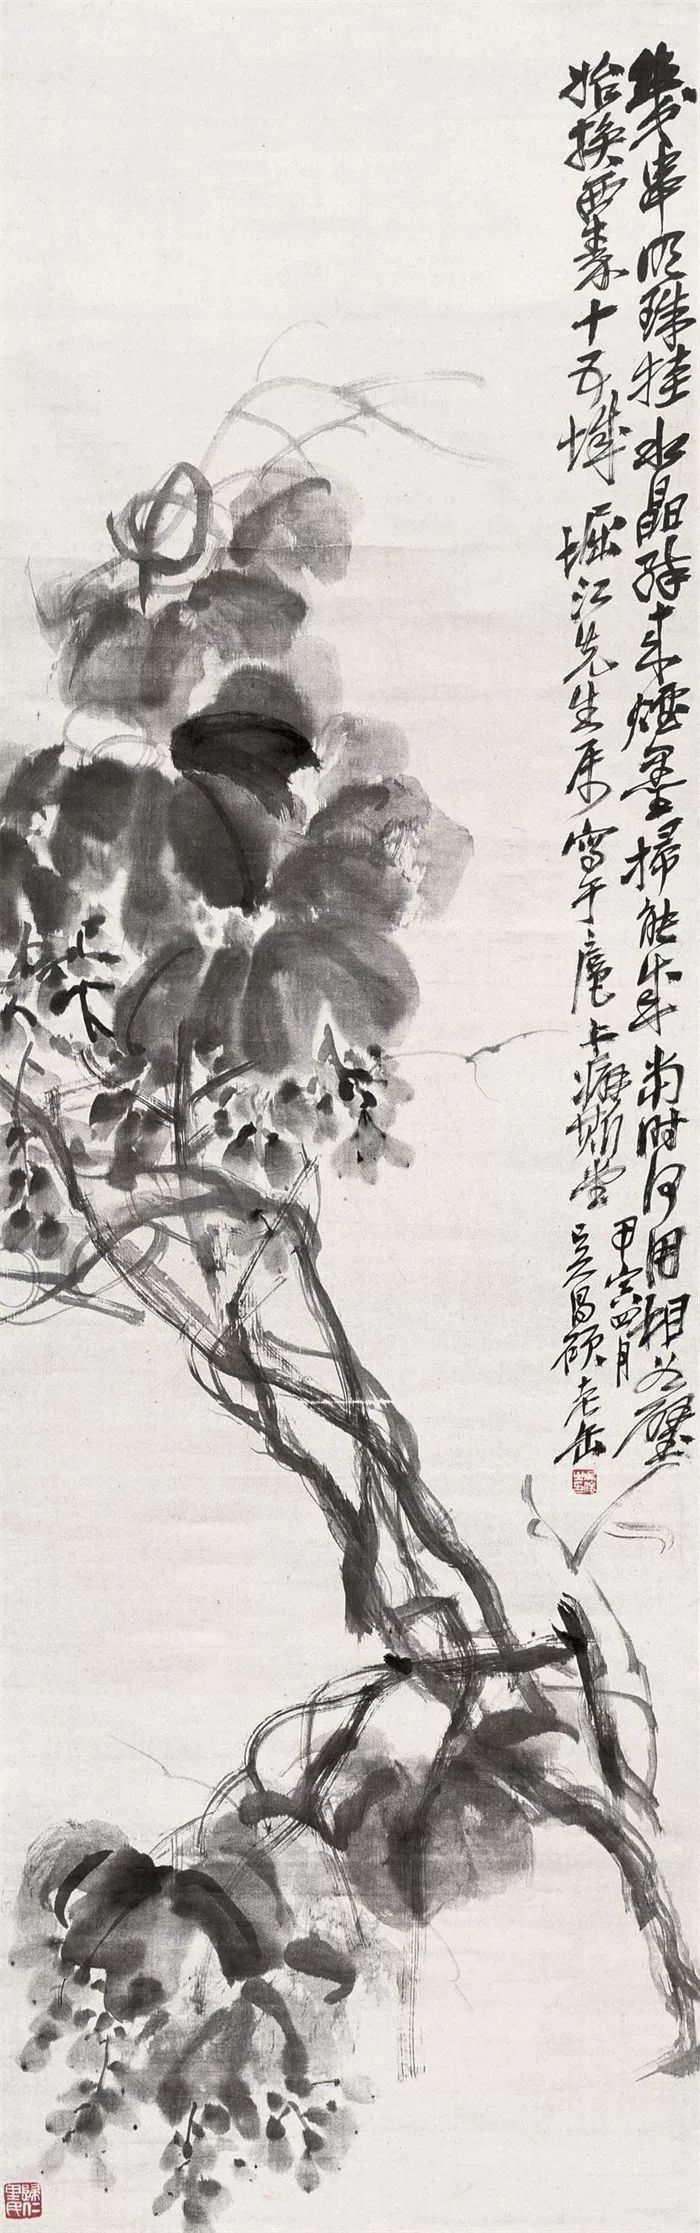 幾串明珠挂水晶醉來煙墨掃能成當時何用相如璧
始換西秦十五城 堀江先生屬寫于扈上癖斯堂
甲寅四月
吳昌碩老缶
歸仁里民